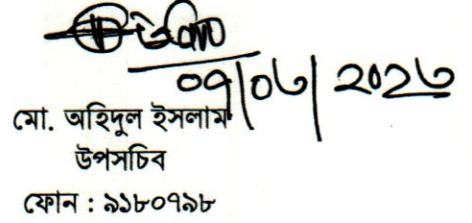 ০৭/০৬/২০২৩
মো. অহিদুল ইসলাম
উপসচিব
ফোন : ৯১৮০৭৯৮